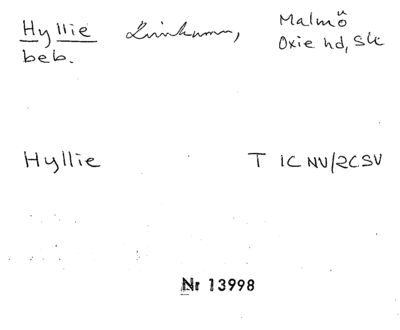 Hyllie Limhamn, Malmö
beb. Oxie hd, Sk
Hyllie T 1C NV/2C SV
Nr 13998